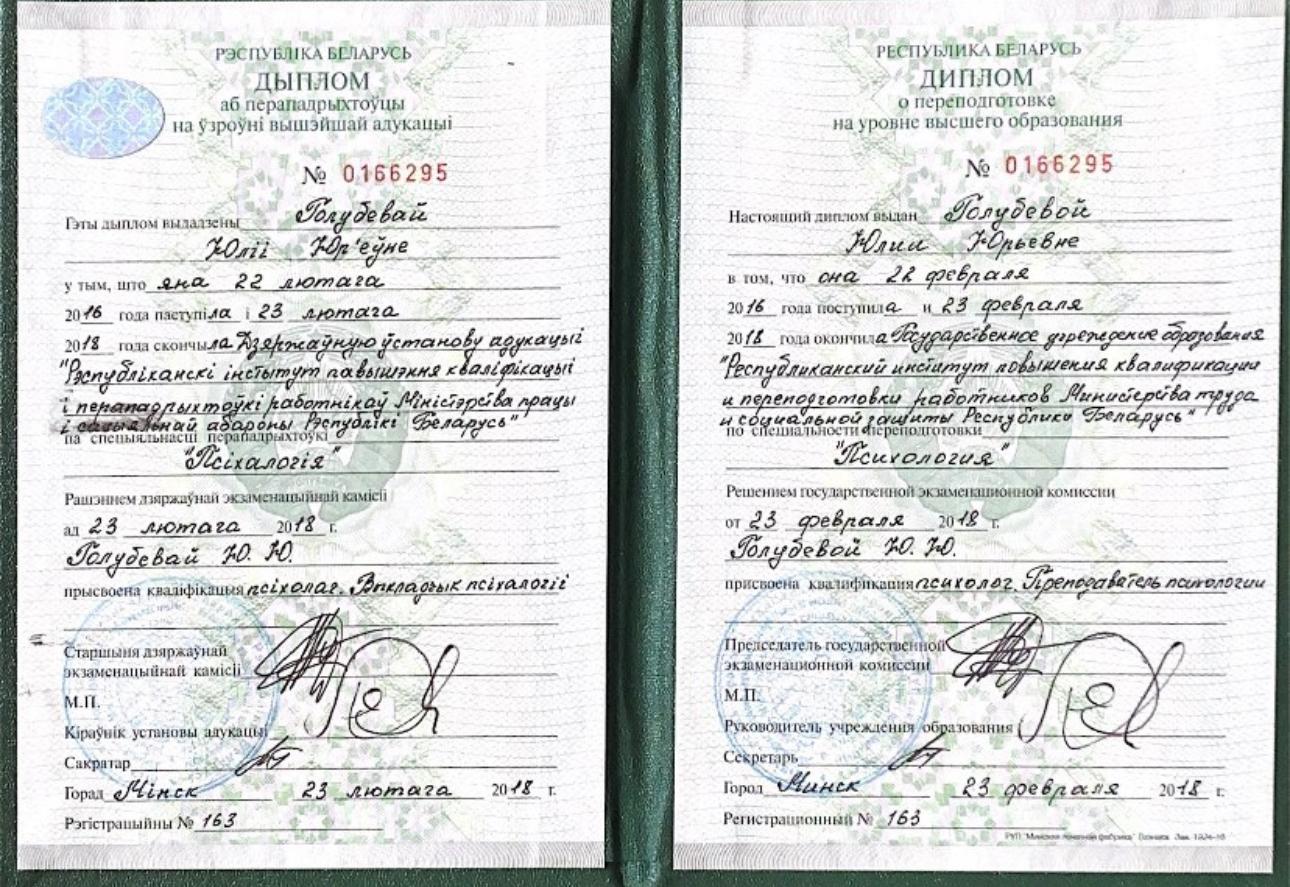 РЭСПУБЛІКА БЕЛАРУСЬ
ДЫПЛОМ
аб перападрыхтоўцы
на ўзроўні вышэйшай адукацыі
№ 0166295
Гэты дыплом выдадзены Голубевай
Юліі Юр'еўне
у тым, што яна 22 лютага
2016 года паступіла і 23 лютага
2018 года скончыла Дзяржаўную ўстанову адукацыі
"Рэспубліканскі інстытут павышэння кваліфікацыі
і перападрыхтоўкі работнікаў Міністэрства працы
і сацыяльнай абароны Рэспублікі Беларусь"
па спецыяльнасці перападрыхтоўкі
"Псіхалогія"
Рашэннем дзяржаўнай экзаменацыйнай камісіі
ад 23 лютага 2018 г.
Голубевай Ю. Ю.
прысвоена кваліфікацыя псіхолаг. Выкладчык псіхалогіі
Старшыня дзяржаўнай
экзаменацыйнай камісіі
М.П.
Кіраўнік установы адукацыі
Сакратар
Горад Мінск 23 лютага 2018 г.
Рэгістрацыйны № 163
РЕСПУБЛИКА БЕЛАРУСЬ
ДИПЛОМ
о переподготовке
на уровне высшего образования
№ 0166295
Настоящий диплом выдан Голубевой
Юлии Юрьевне
в том, что она 22 февраля
2016 года поступила и 23 февраля
2018 года окончила Государственное учреждение образования
"Республиканский институт повышения квалификации
и переподготовки работников Министерства труда
и социальной защиты Республики Беларусь"
по специальности переподготовки
"Психология"
Решением государственной экзаменационной комиссии
от 23 февраля 2018 г.
Голубевой Ю. Ю.
присвоена квалификация психолог. Преподаватель психологии
Председатель государственной
экзаменационной комиссии
М.П.
Руководитель учреждения образования
Секретарь
Город Минск 23 февраля 2018 г.
Регистрационный № 163
РУП "Минская печатная фабрика" Гознака. Зак. 1324-16